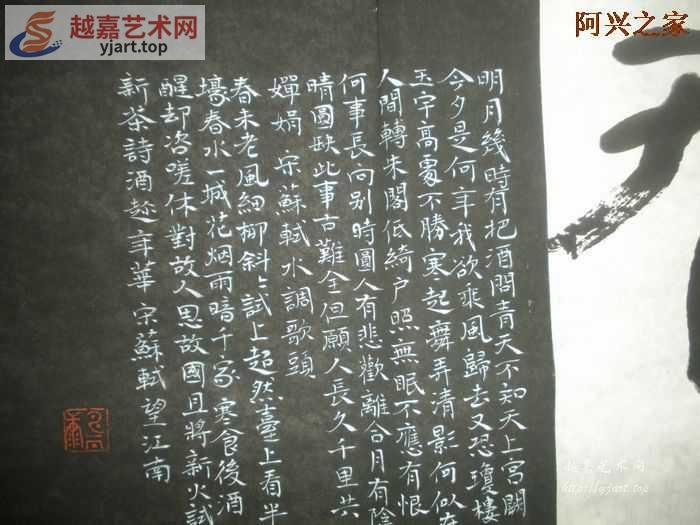 越嘉艺术网
yjart.top
阿兴之家
明月幾時有把酒問青天不知天上宮闕
今夕是何年我欲乘風歸去又恐瓊樓
玉宇高處不勝寒起舞弄清影何似在
人間轉朱閣低綺户照無眠不應有恨
何事長向别時圓人有悲歡離合月有陰
晴圓缺此事古難全但願人長久千里共
嬋娟 宋蘇軾水調歌頭
春未老風細柳斜斜試上超然臺上看半
壕春水一城花烟雨暗千家寒食後酒
醒却咨嗟休對故人思故國且將新火試
新茶詩酒趁年華 宋蘇軾望江南
越嘉艺术网
http://yjart.top